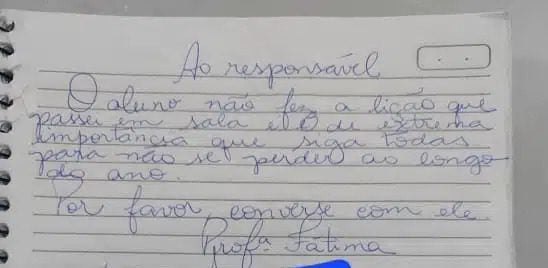 Ao responsável
O aluno não fez a lição que
passei em sala e é de extrema
importância que siga todas
para não se perder ao longo
do ano.
Por favor, converse com ele.
Profª Fatima